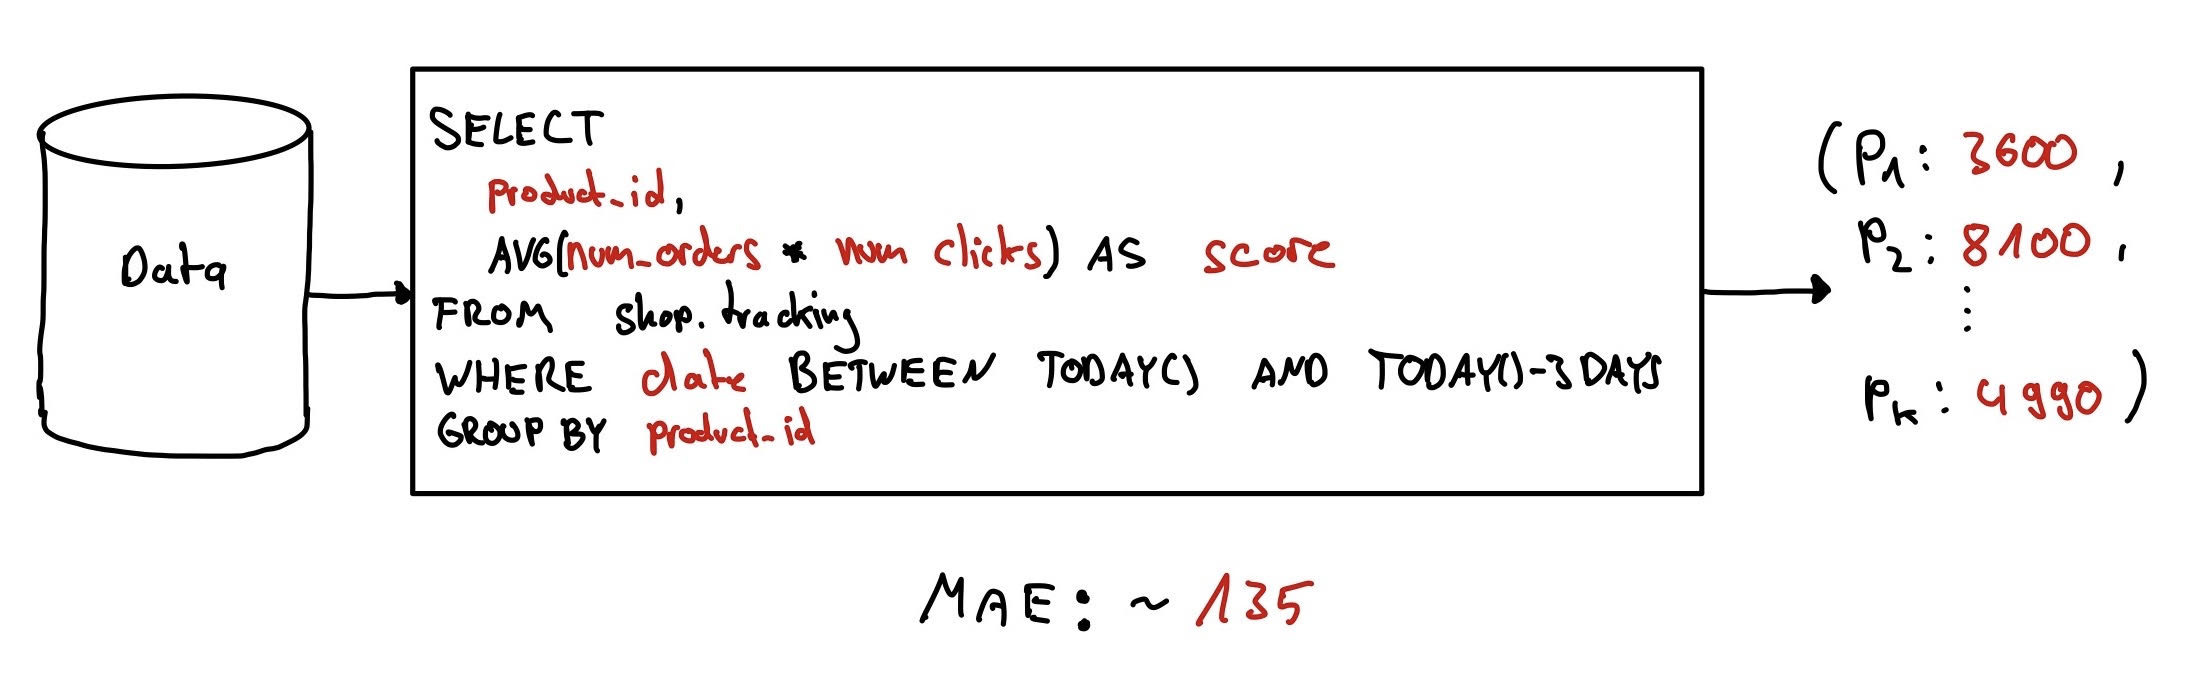 Data
SELECT
product_id,
AVG(num_orders * num clicks) AS score
FROM shop.tracking
WHERE date BETWEEN TODAY() AND TODAY()-3 DAYS
GROUP BY product_id
(P1: 3600,
P2: 8100,
⋮
Pk: 4990)
MAE: ~ 135